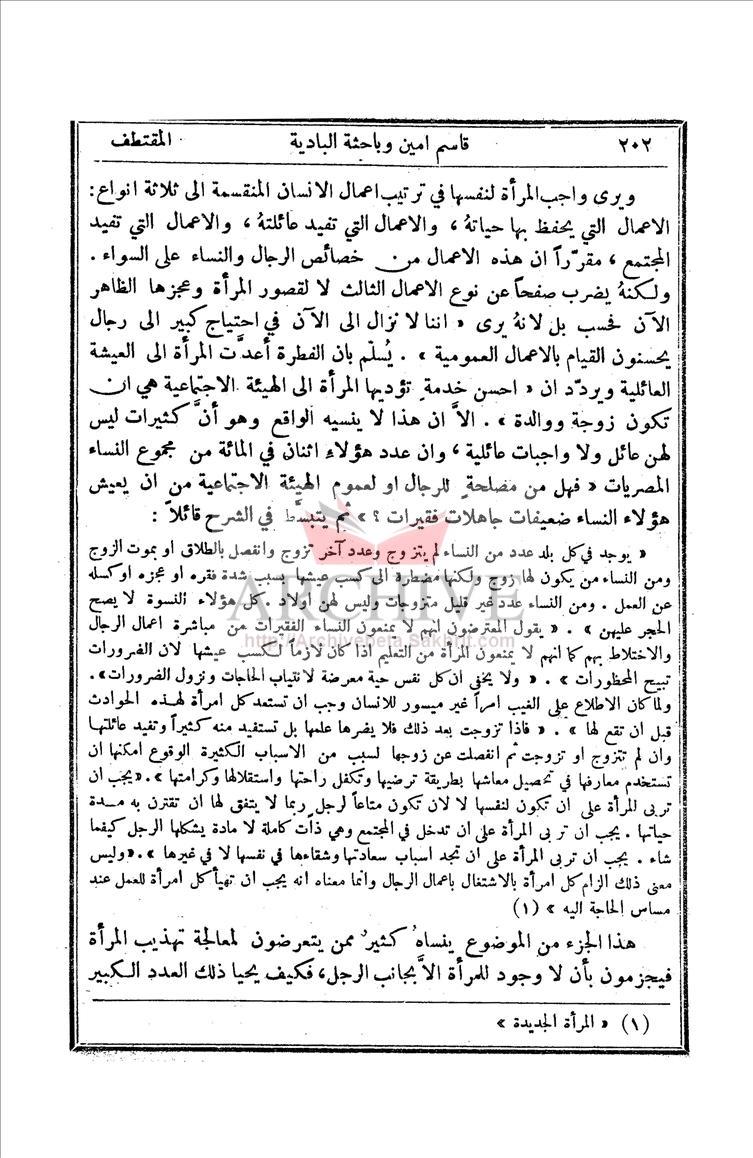 ٢٠٢ قاسم امين وباحثة البادية المقتطف
ويرى واجب المرأة لنفسها في ترتيب اعمال الانسان المنقسمة الى ثلاثة انواع:
الاعمال التي يحفظ بها حياتهُ ، والاعمال التي تفيد عائلتهُ ، والاعمال التي تفيد
المجتمع ، مقرّراً ان هذه الاعمال من خصائص الرجال والنساء على السواء .
ولكنهُ يضرب صفحاً عن نوع الاعمال الثالث لا لقصور المرأة وعجزها الظاهر
الآن فحسب بل لانهُ يرى « اننا لا نزال الى الآن في احتياج كبير الى رجال
يحسنون القيام بالاعمال العمومية » . يُسلّم بان الفطرة أعدَّت المرأة الى العيشة
العائلية ويردّد ان « احسن خدمةٍ تؤديها المرأة الى الهيئة الاجتماعية هي ان
تكون زوجة ووالدة » . الاَّ ان هذا لا ينسيه الواقع وهو أنَّ كثيرات ليس
لهن عائل ولا واجبات عائلية ، وان عدد هؤلاء اثنان في المائة من مجموع النساء
المصريات « فهل من مصلحةٍ للرجال او لعموم الهيئة الاجتماعية من ان يعيش
هؤلاء النساء ضعيفات جاهلات فقيرات ؟ » ثم يتبسَّط في الشرح قائلاً :
« يوجد في كل بلد عدد من النساء لم يتزوج وعدد آخر تزوج وانفصل بالطلاق او بموت الزوج
ومن النساء من يكون لها زوج ولكنها مضطرة الى كسب عيشها بسبب شدة فقره او عجزه او كسله
عن العمل . ومن النساء عدد غير قليل متزوجات وليس لهن اولاد . كل هؤلاء النسوة لا يصح
الحجر عليهن » . « يقول المعترضون انهم لا يمنعون النساء الفقيرات من مباشرة اعمال الرجال
والاختلاط بهم كما انهم لا يمنعون المرأة من التعليم اذا كان لازماً لكسب عيشها لان الضرورات
تبيح المحظورات » . « ولا يخفى ان كل نفس حية معرضة لانتياب الحاجات ونزول الضرورات».
ولما كان الاطلاع على الغيب امراً غير ميسور للانسان وجب ان تستعد كل امرأة لهذه الحوادث
قبل ان تقع لها » . « فاذا تزوجت بعد ذلك فلا يضرها علمها بل تستفيد منه كثيراً وتفيد عائلتها
وان لم تتزوج او تزوجت ثم انفصلت عن زوجها لسبب من الاسباب الكثيرة الوقوع امكنها ان
تستخدم معارفها في تحصيل معاشها بطريقة ترضيها وتكفل راحتها واستقلالها وكرامتها ».«يجب ان
تربى المرأة على ان تكون لنفسها لا لان تكون متاعاً لرجل ربما لا يتفق لها ان تقترن به مدة
حياتها . يجب ان تربى المرأة على ان تدخل في المجتمع وهي ذات كاملة لا مادة يشكلها الرجل كيفما
شاء . يجب ان تربى المرأة على ان تجد اسباب سعادتها وشقاءها في نفسها لا في غيرها ».«وليس
معنى ذلك الزام كل امرأة بالاشتغال باعمال الرجال وانما معناه انه يجب ان تهيأ كل امرأة للعمل عند
مساس الحاجة اليه » (١)
هذا الجزء من الموضوع ينساهُ كثيرٌ ممن يتعرضون لمعالجة تهذيب المرأة
فيجزمون بأن لا وجود للمرأة الاَّ بجانب الرجل، فكيف يحيا ذلك العدد الكبير
(١) « المرأة الجديدة »
ARCHIVE
http://Archivebeta.Sakhrit.com